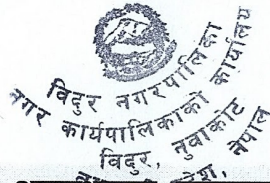 विदुर नगरपालिका
नगर कार्यपालिकाको कार्यालय
विदुर, नुवाकोट
नेपाल